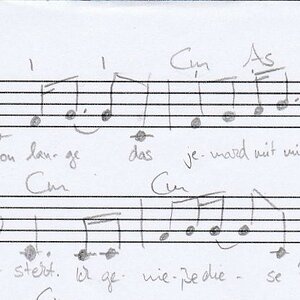 Cm As
on lan-ge das je-mand mit mi
Cm Cm
stert. Er ge-nie-ße die- se
C